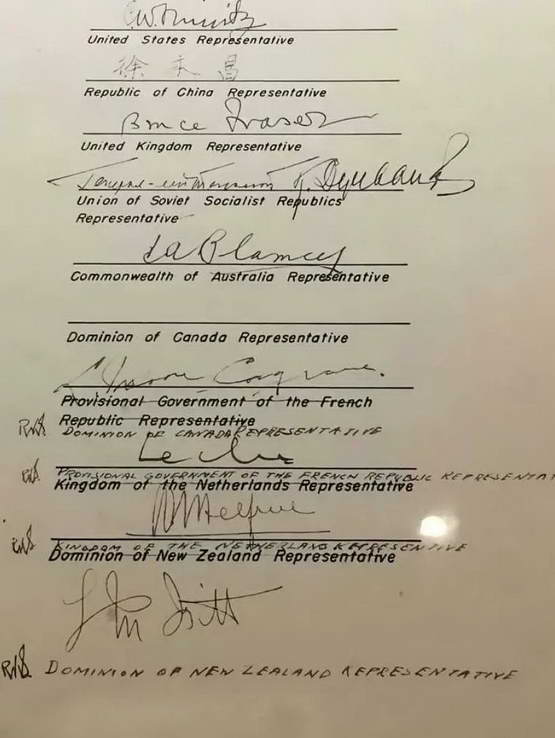 C.W. Nimitz
United States Representative
徐永昌
Republic of China Representative
Bruce Fraser
United Kingdom Representative
Union of Soviet Socialist Republics
Representative
T.A. Blamey
Commonwealth of Australia Representative
Dominion of Canada Representative
Moore Cosgrave.
Provisional Government of the French
Republic Representative
DOMINION OF CANADA REPRESENTATIVE
Leclerc
PROVISIONAL GOVERNMENT OF THE FRENCH REPUBLIC REPRESENTAT
Kingdom of the Netherlands Representative
Helfrich
KINGDOM OF THE NETHERLANDS REPRESENTATIVE
Dominion of New Zealand Representative
L M Isitt
DOMINION OF NEW ZEALAND REPRESENTATIVE